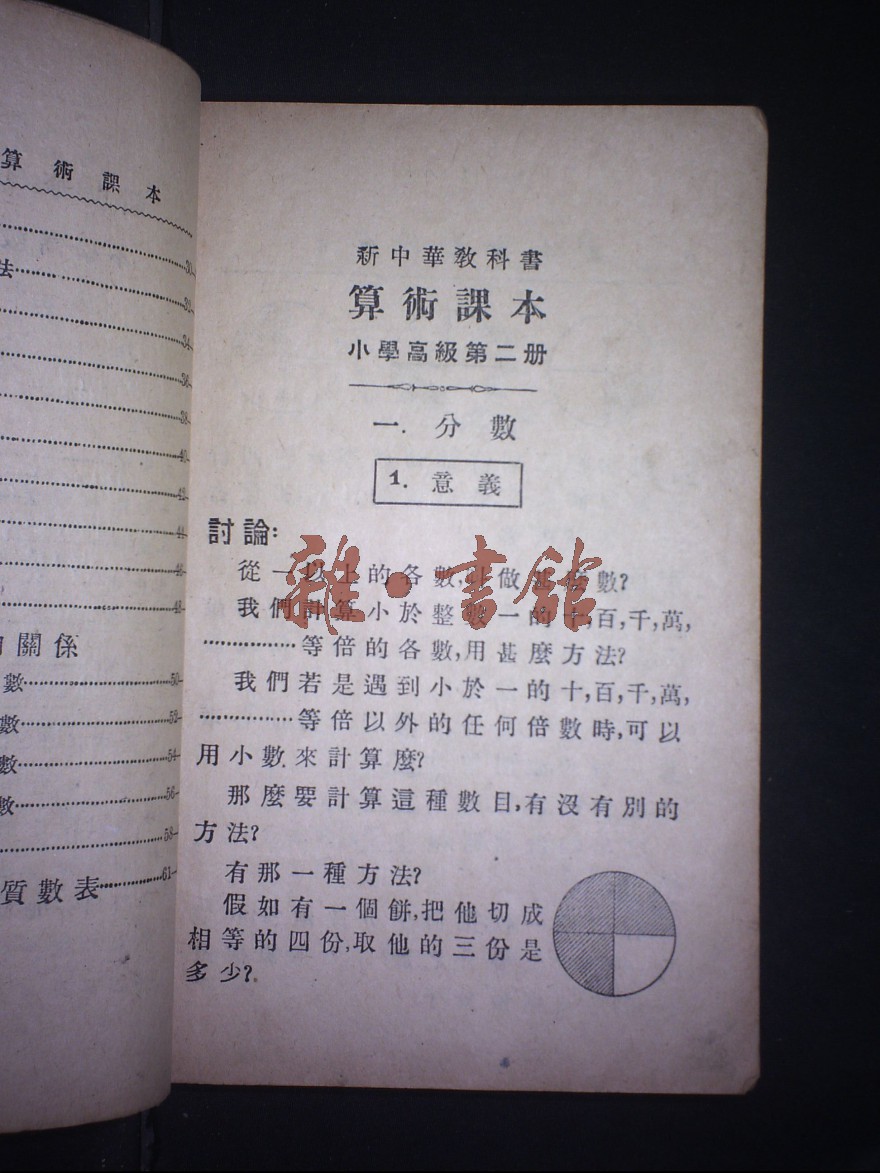 算術課本
30
法 32
34
36
38
40
42
44
46
48
關係
數 50
數 52
數 54
數 56
58
質數表 61
新中華教科書
算術課本
小學高級第二册
一. 分數
1. 意義
討論:
從一以上的各數,叫做甚麼數?
我們計算小於整數一的十,百,千,萬,
…………等倍的各數,用甚麼方法?
我們若是遇到小於一的十,百,千,萬,
…………等倍以外的任何倍數時,可以
用小數來計算麼?
那麼要計算這種數目,有沒有別的
方法?
有那一種方法?
假如有一個餅,把他切成
相等的四份,取他的三份是
多少?
雜·書館